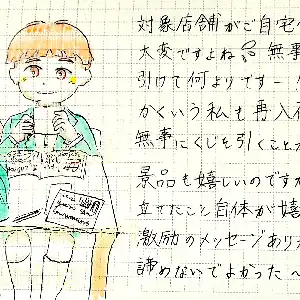 対象店舗がご自宅
大変ですよね 無事
引けて何よりですー!
かくいう私も再入
無事にくじを引くことが
景品も嬉しいのですが
立てたこと自体が嬉
激励のメッセージあり
諦めないでよかった